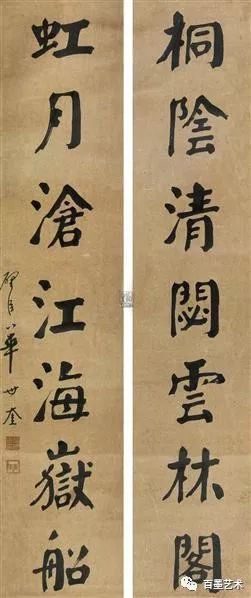 桐陰清閟雲林閣
虹月滄江海嶽船
華世奎
百墨艺术